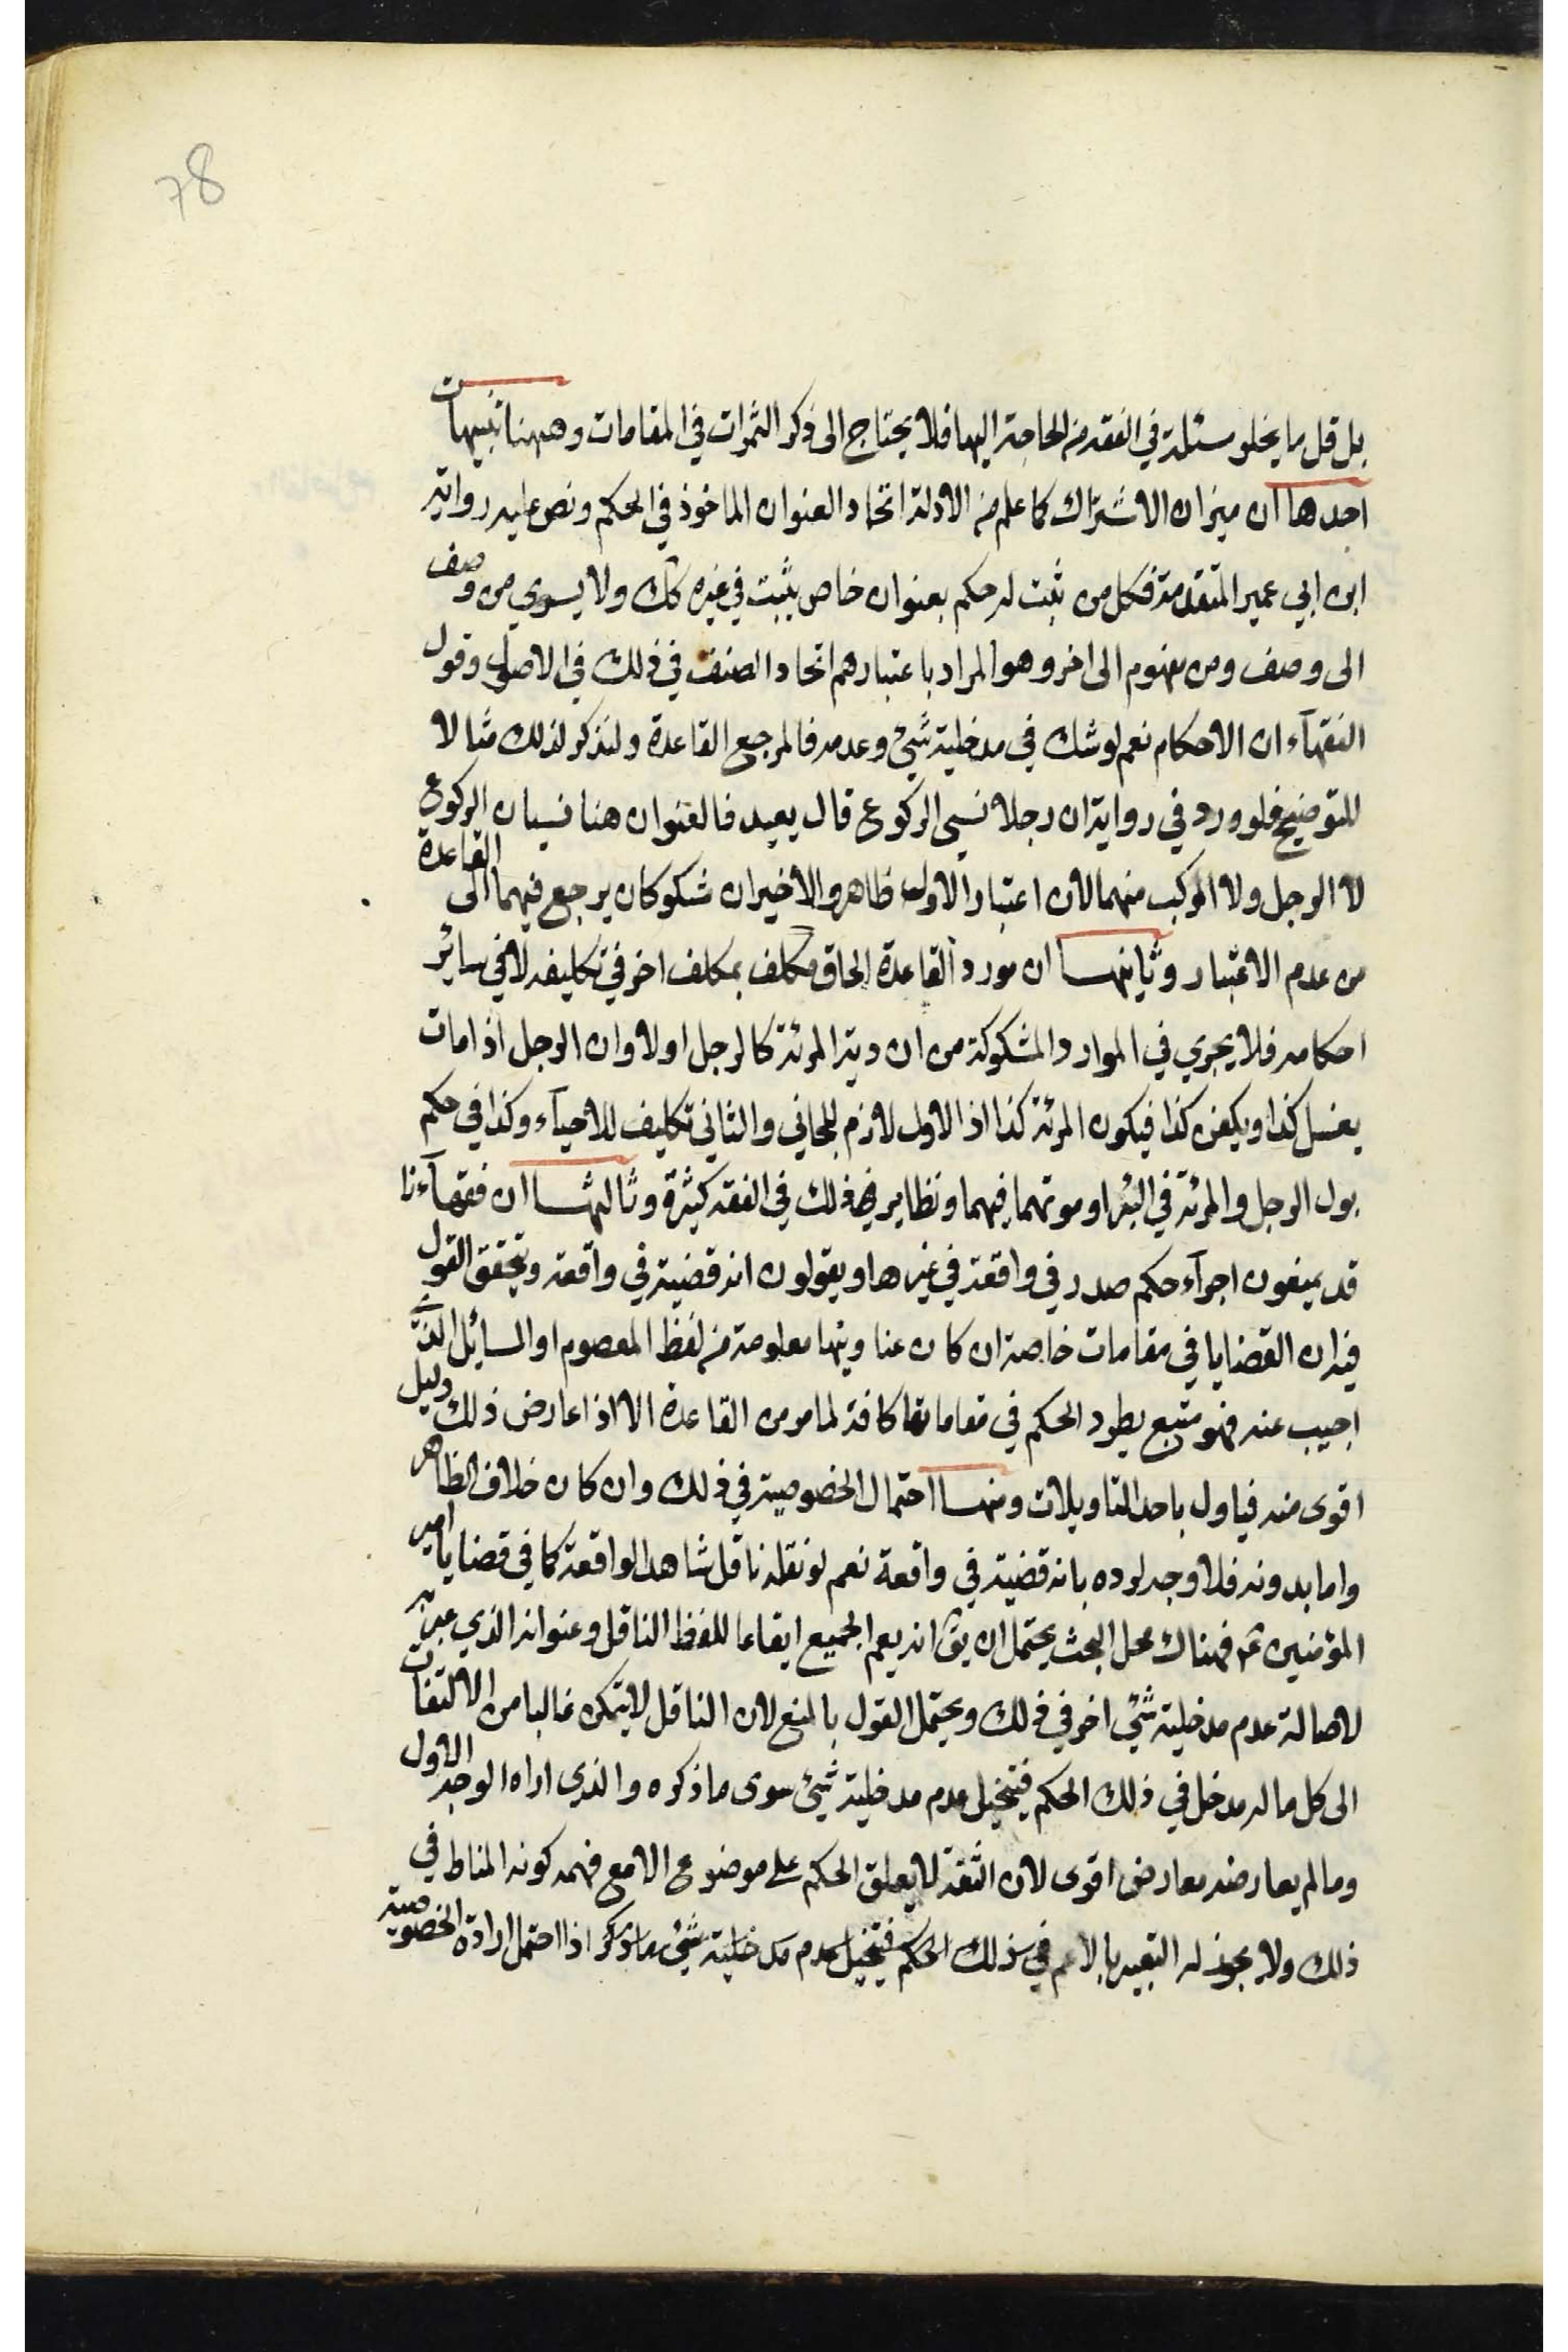 78
بل قل ما يخلو مسئلة في الفقه من الحاجة اليها فلا يحتاج الى ذكر الثمرات في المقامات وههنا تنبيهات
احدها ان ميزان الاشتراك كما علم من الادلة اتحاد العنوان الماخوذ في الحكم ونص عليه رواية
ابن ابي عمير المتقدمة فكل من ثبت له حكم بعنوان خاص يثبت في غيره كك ولا يسوي من وصف
الى وصف ومن مفهوم الى اخر وهو المراد باعتبارهم اتحاد الصنف في ذلك في الاصول وقول
الفقهآء ان الاحكام نعم لو شك في مدخلية شيئ وعدمه فالمرجع القاعدة ولنذكر لذلك مثالا
للتوضيح فلو ورد في رواية ان رجلا نسي الركوع قال يعيد فالعنوان هنا نسيان الركوع
لا الرجل ولا المركب منهما لان اعتبار الاول ظاهر والاخيران شكوكان يرجع فيهما الى القاعدة
من عدم الاعتبار وثانيها ان مورد القاعدة الحاق مكلف بمكلف اخر في تكليفه لا في سائر
احكامه فلا يجري في الموارد المشكوكة من ان دية المرئة كالرجل اولا وان الرجل اذا مات
يغسل كذا ويكفن كذا فيكون المرئة كذا اذ الاول لازم للجاني والثاني تكليف للاحيآء وكذا في حكم
بول الرجل والمرئة في البئر او موتهما فيهما ونظاير ذلك في الفقه كثيرة وثالثها ان فقهآءنا
قد يمنعون اجرآء حكم صدر في واقعة في غيرها ويقولون انه قضية في واقعة وتحقق القول
فيه ان القضايا في مقامات خاصة ان كان عناوينها معلومة من لفظ المعصوم او السائل الذي
اجيب عنه فهو متبع يطرد الحكم في مقاماتها كافة لما مر من القاعدة الا اذا عارض ذلك دليل
اقوى منه فياول باحد التاويلات ومنها احتمال الخصوصية في ذلك وان كان خلاف الظاهر
واما بدونه فلا وجه لرده بانه قضية في واقعة نعم لو نقله ناقل شاهد الواقعة كما في قضايا امير
المؤمنين ع فهناك محل البحث يحتمل ان يق انه يعم الجميع ابقاءا للفظ الناقل وعنوانه الذي عبر به
لاصالة عدم مدخلية شيئ اخر في ذلك ويحتمل القول بالمنع لان الناقل لا يتمكن غالبا من الالتفات
الى كل ما له مدخل في ذلك الحكم فيتخيل عدم مدخلية شيئ سوى ما ذكره والذي اراه الوجه الاول
وما لم يعارضه معارض اقوى لان الثقة لا يعلق الحكم على موضوع الا مع فهمه كونه المناط في
ذلك ولا يجوز له التعبير بالاعم في ذلك الحكم فيتخيل عدم مدخلية شيئ ما ذكر اذا احتمل ارادة الخصوصية